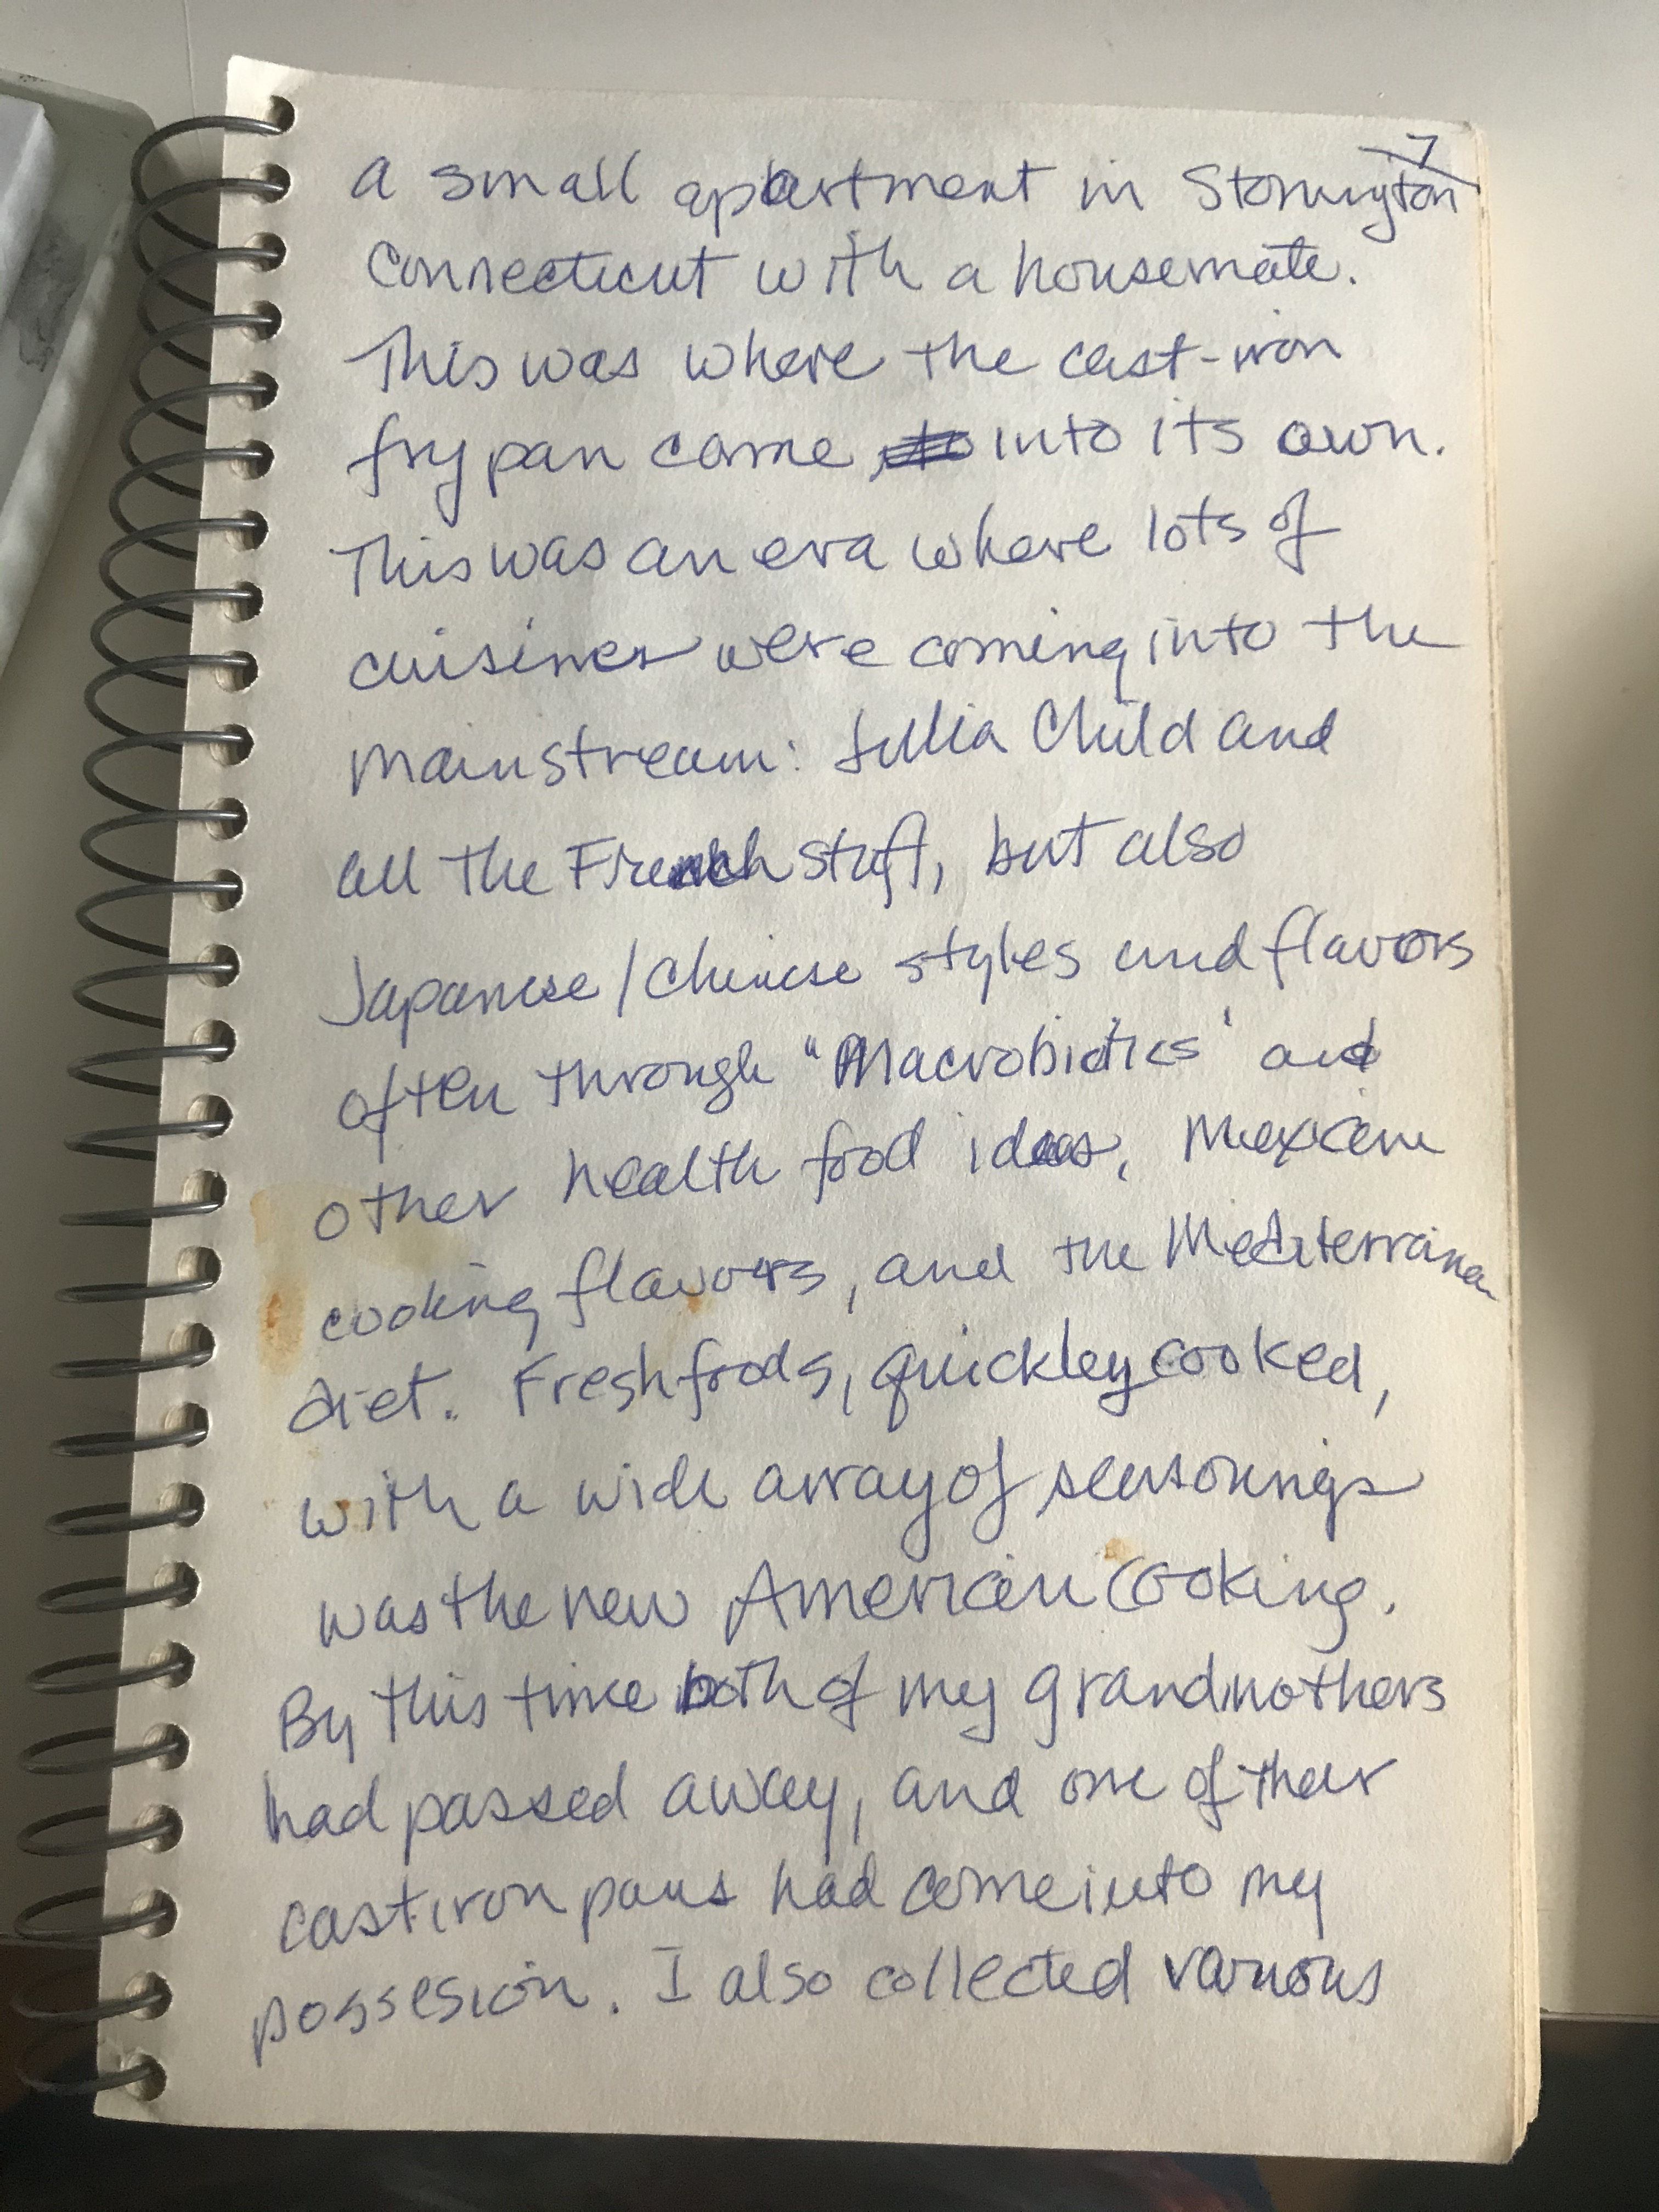 7
a small apartment in Stonington
Connecticut with a housemate.
This was where the cast-iron
fry pan came into its own.
This was an era where lots of
cuisines were coming into the
mainstream: Julia Child and
all the French stuff, but also
Japanese/Chinese styles and flavors
often through "Macrobiotics' and
other health food ideas, Mexican
cooking flavors, and the Mediterranean
diet. Fresh foods, quickley cooked,
with a wide array of seasonings
was the new American cooking.
By this time both of my grandmothers
had passed away, and one of their
cast iron pans had come into my
possesion. I also collected various